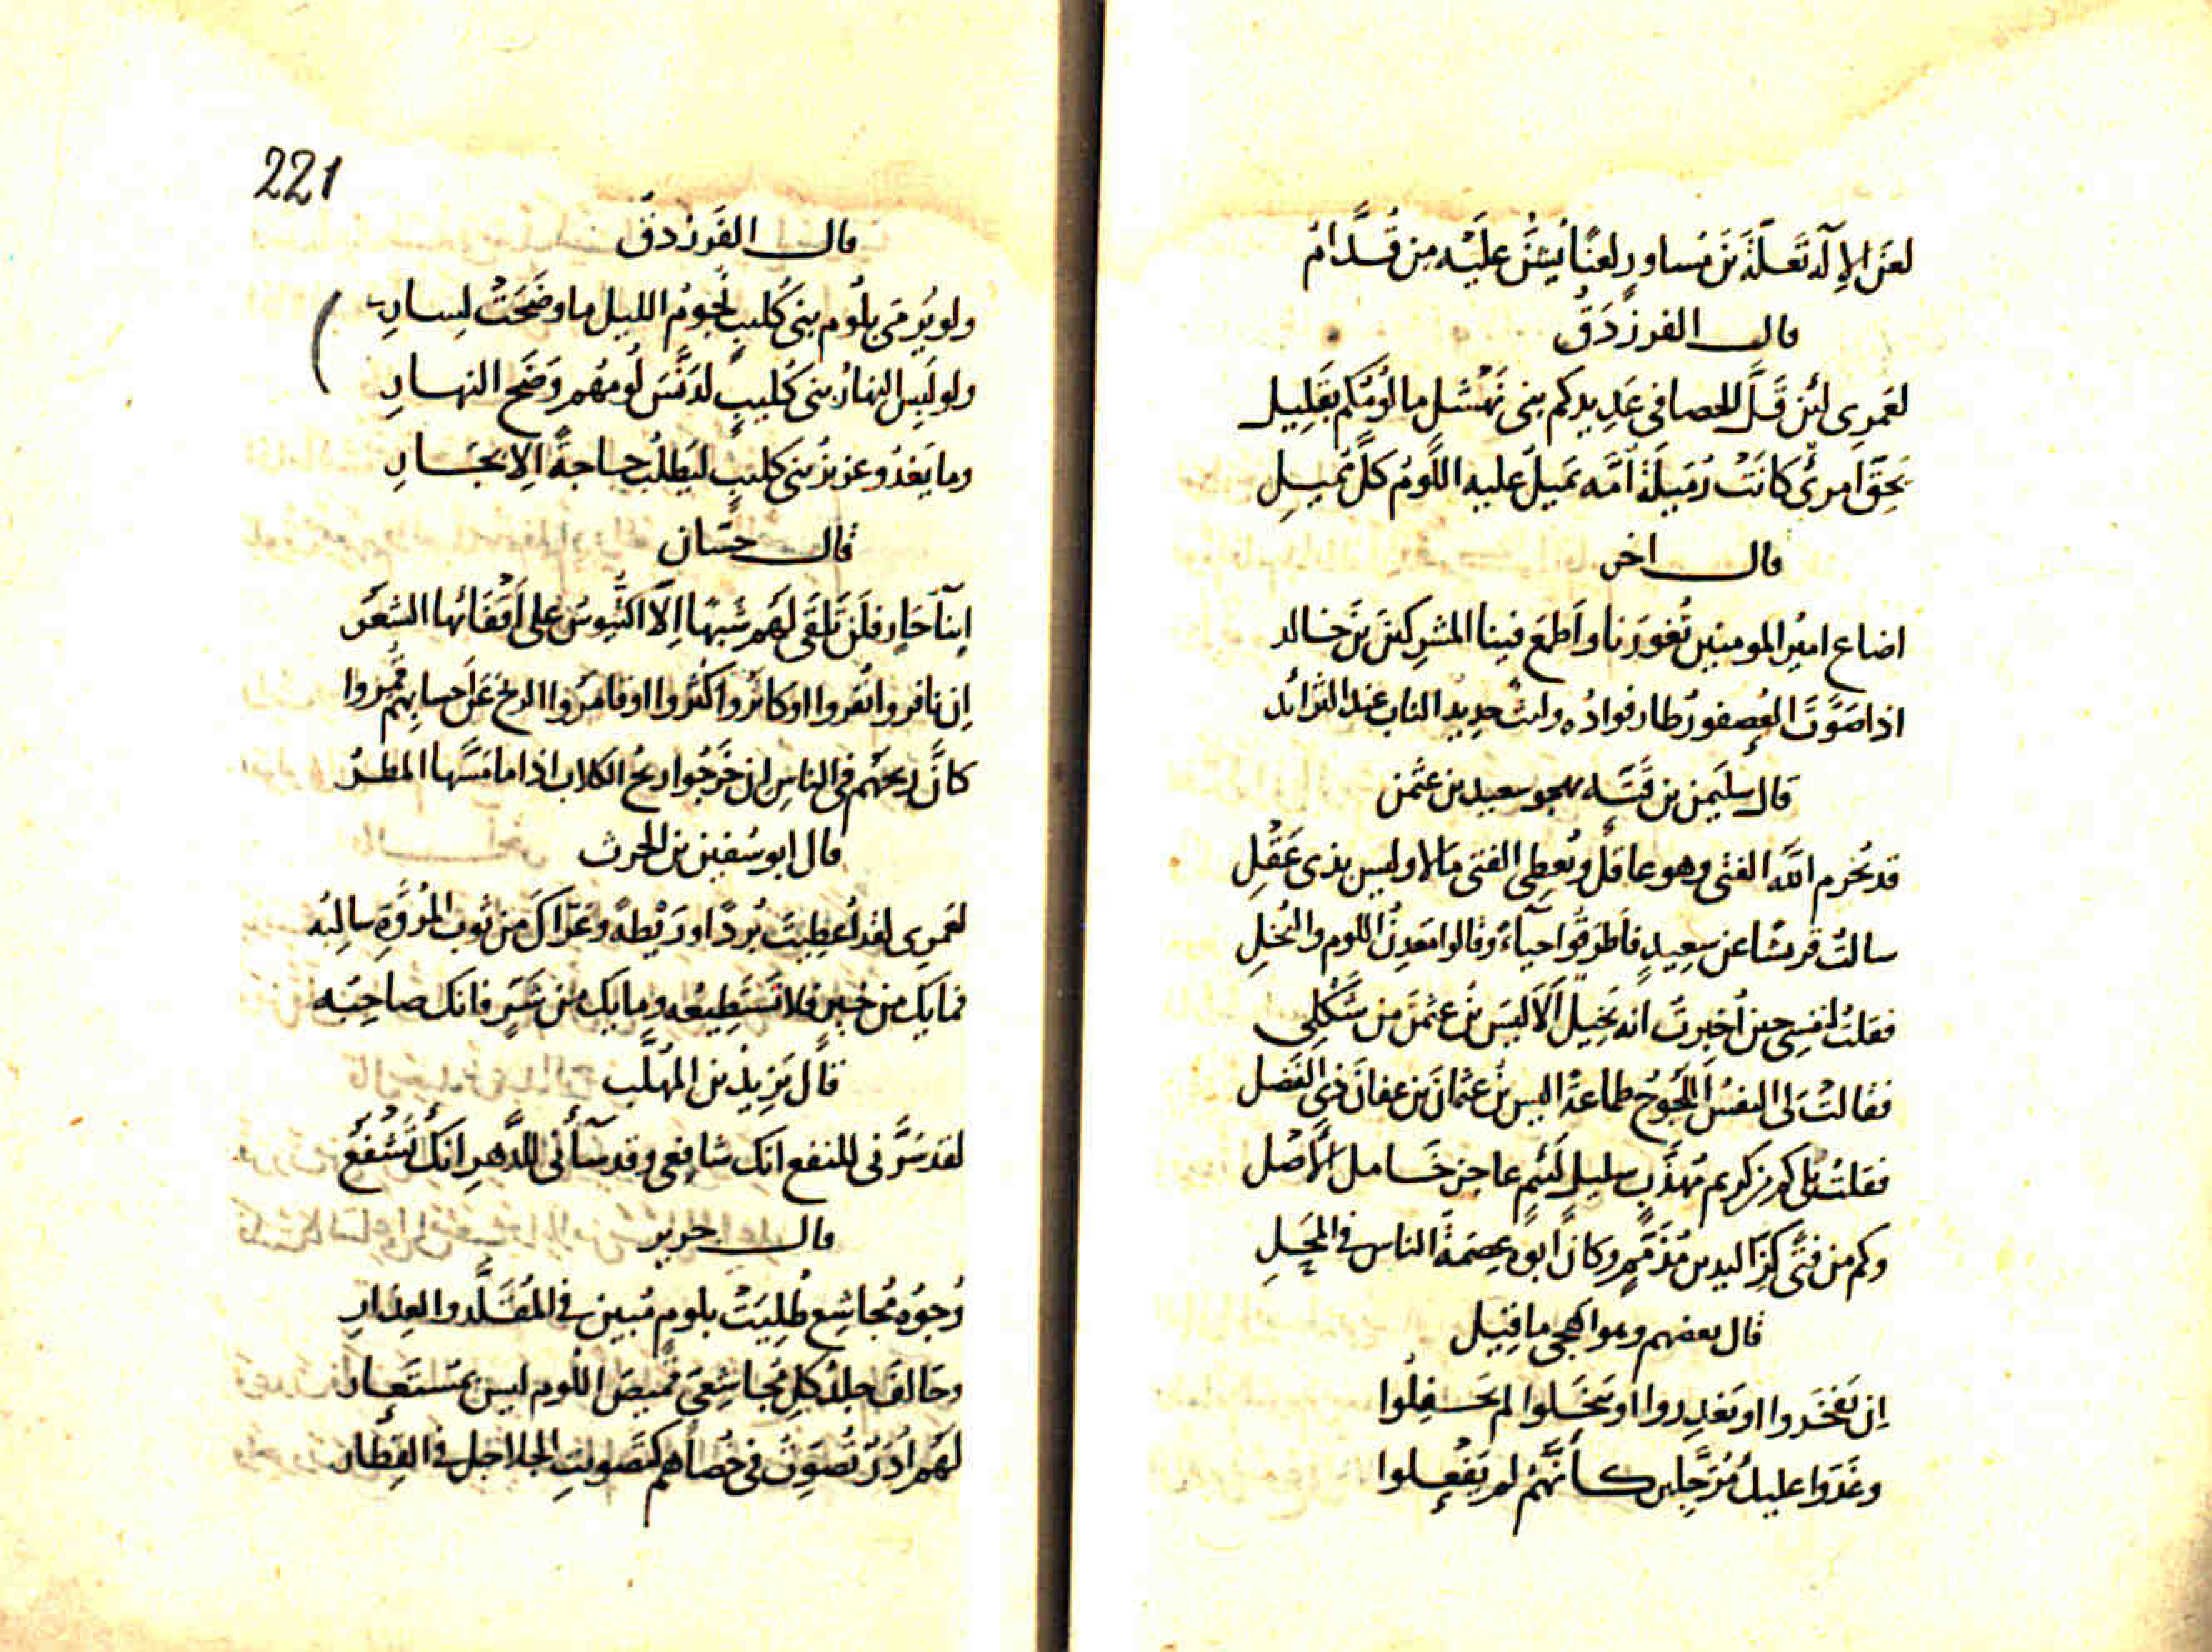 لعَنَ الإله تَعِلّةَ بنَ مُسَاوِرٍ لعنًا يُشَنُّ عليه مِن قُدَّامُ
قال الفرزدَقُ
لعَمرِى لئن قَلَّ الحصا فى عَدِيدِكم بنى نَهشَلٍ ما لُومُكم بقَلِيلِ
بحَقّ امرِئٍ كانَتْ رُمَيلَةُ أُمَّه يَميلُ عليه اللُّومُ كلَّ مَميلِ
قال اخر
اضاع اميرُ المومنين ثُغورَنا واَطمعَ فينا المشركينَ بنُ خالد
اذا صَوَّتَ العُصفورُ طار فوادُه وليثٌ حديدُ الناب عند الثرائد
قال سليمن بن قَتَّه يهجو سعيد بن عثمن
قد يُحرم اللّهُ الفتى وهو عاقلٌ ويُعطِى الفتى مَالا وليس بذى عَقْلِ
سالتُ قريشًا عن سعيدٍ فاَطرَقُوا حياءً وقالوا مَعدِنُ اللوم والبُخلِ
فقلتُ لنفسِى حينَ أُخبِرتُ انه بَخِيلٌ اَلَا ليسَ بنُ عثمنَ من شَكْلِى
فقالتْ لى النفسُ اللَّجُوجُ طماعةً اليس بنُ عثمانَ بن عفانَ ذى الفَضل
فقلتُ بلى كم من كريم مُهذَّبٍ سليلِ لئيمٍ عاجزٍ خامل الأَصل
وكم من فتًى كزِّ اليدين مُذَمَّمٍ وكان ابوه عِصمَةَ الناس فى المَحلِ
قال بعضهم وهو اهجى ما قِيل
اِن يَفخَروا او يَغدِروا او يَبخَلوا لم يَحفِلُوا
وغَدَوا عليك مُرَجَّلين كأنَّهُم لم يَفْعلوا
221
قال الفَرزدقُ
ولو يُرمَى بلُوم بنى كُليبٍ نُجومُ الليل ما وضَحَتْ لِسارِ
ولو لَبِس النهارُ بنى كُليبٍ لدَنَّسَ لُومُهُم وَضَحَ النهارِ
وما يَغدُو عزيزُ بنى كليبٍ ليَطلُبَ حاجةً الا بجَارِ
قال حسّان
اَبنآ حَارِ فلَن تَلقَى لهُم شَبَهًا اِلّا التُّيوسُ على اَقْفَائها الشَعَرُ
اِن نافروا نُفروا او كاثَروا كُثروا او قامَروا الريحَ عَن اَحسابهم قُمِروا
كانَّ ريحَهُم فى الناسِ ان خَرَجُوا ريحُ الكلاب اذا ما مَسَّها المطرُ
قال ابو سُفين بن الحرث
لعَمرِى لقد اُعطِيتَ بُردًا ورَيْطةً وعَرّاكَ مِن ثوبِ المُروَّةِ سالِبُه
فما يَكُ من خيرٍ فلا تَستَطِيعُه وما يَكُ من شَرٍّ فانك صاحِبُه
قال يَزِيدُ بن المُهلَّب
لقد سَرَّنى للنفع انك شافِعِى وقد سآءنى للدَّهرِ انكَ تَشْفَعُ
قال جرير
وُجُوه مُجاشِعٍ طُلِيَتْ بلومٍ مُبينٍ فى المُقَلَّد والعِذارِ
وحَالفَ جلدُ كلِّ مُجاشِعىّ قميصَ اللُّوم ليس بمُستَعارِ
لهُم اُدَرٌ تُصَوِّتُ فى خُصاهُم كتَصويتِ الجلاجل فى القِطار